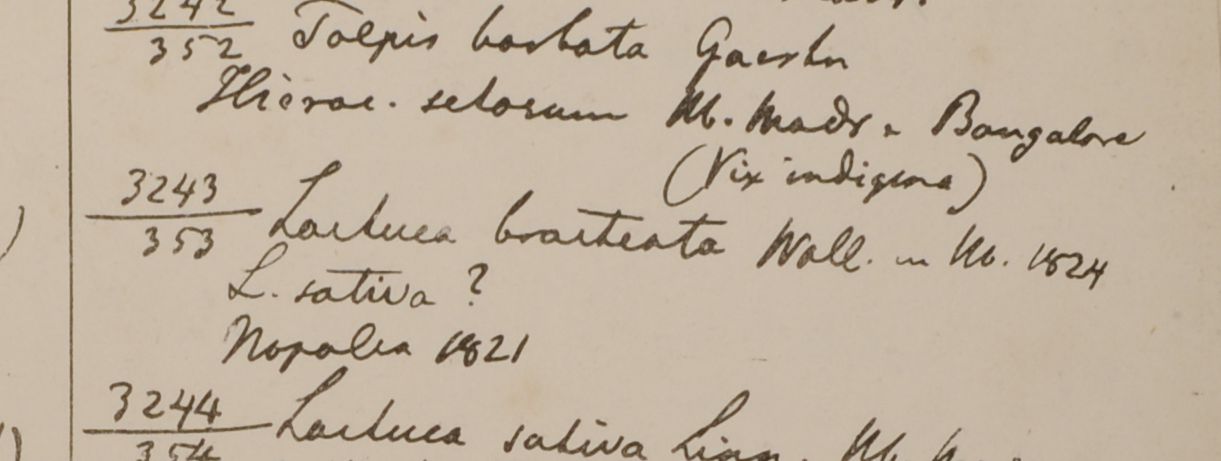 3242
352 Tolpis barbata Gaertn
Hierac. setosum Hb. Madr. Bangalore
(Vix indigena)
3243
353 Lactuca bracteata Wall. in Hb. 1824
L. sativa ?
Napalia 1821
3244
354 Lactuca sativa Linn. Hb.